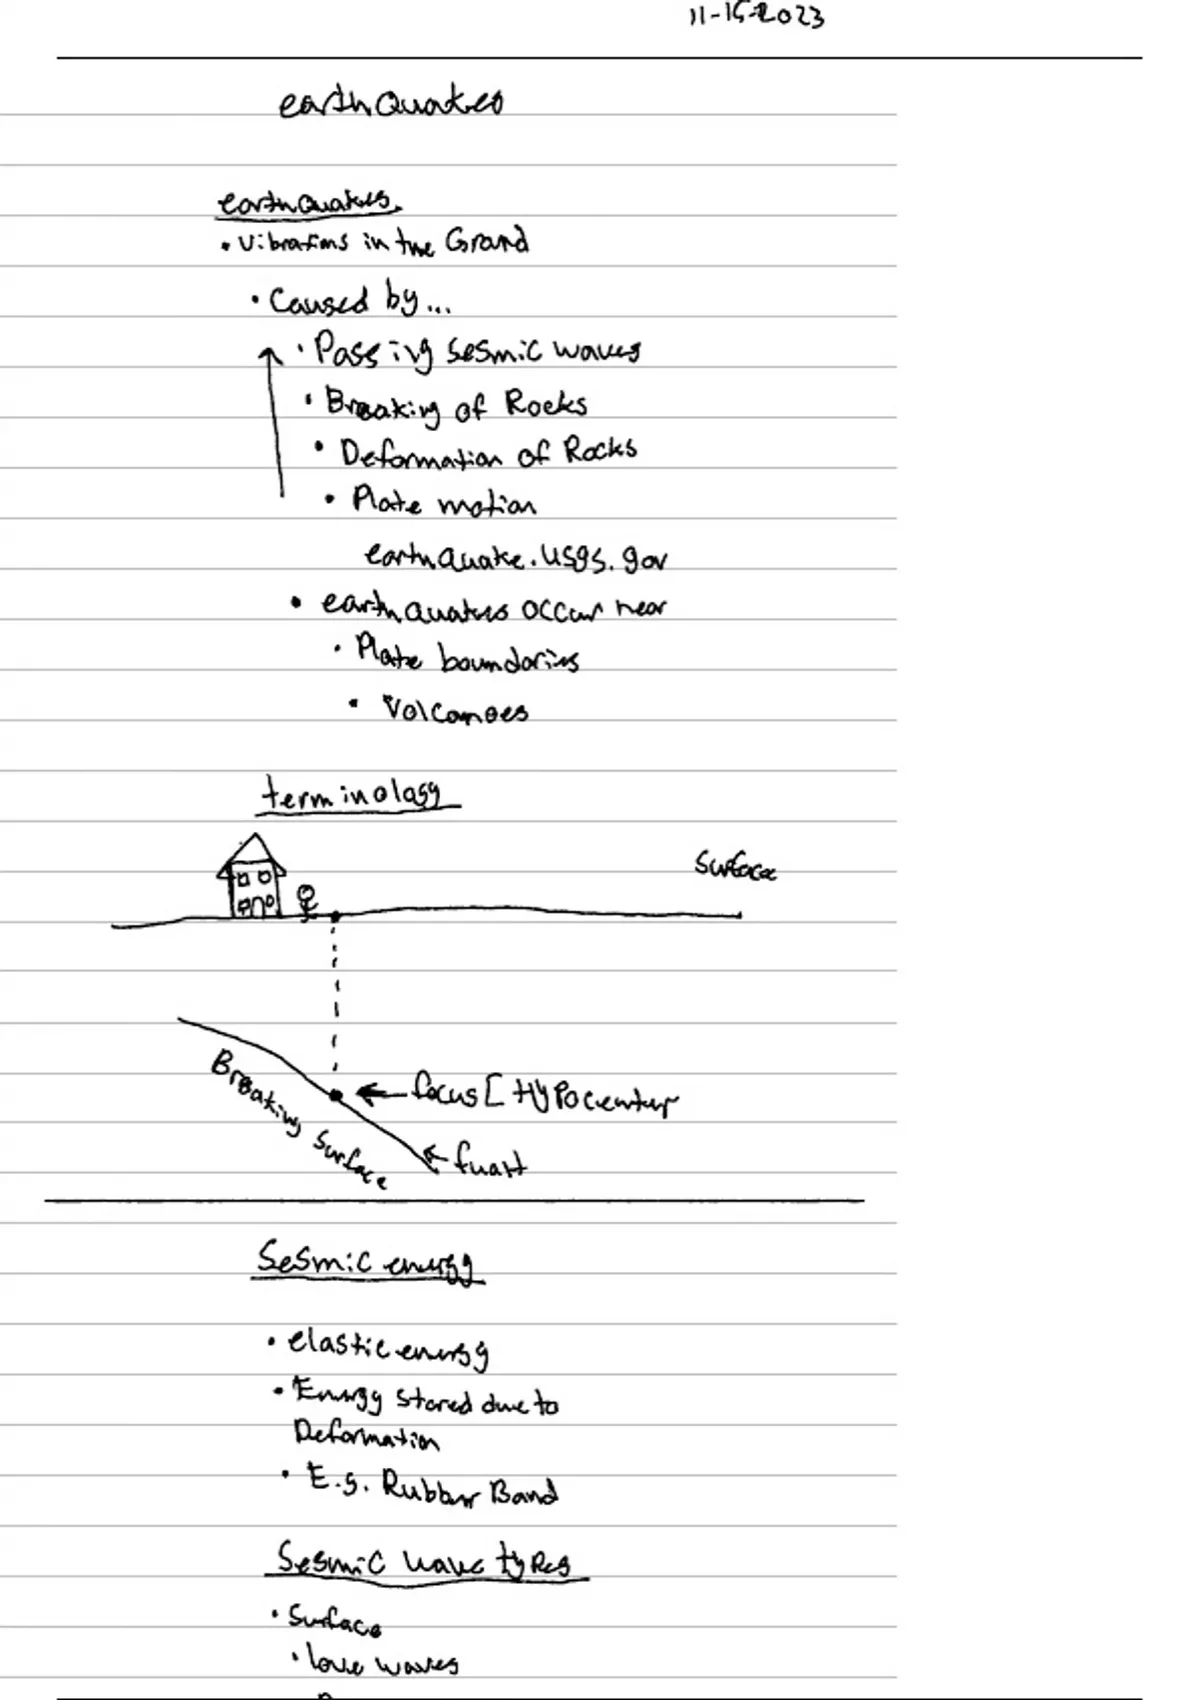 11-15-2023
earthQuakes
earthQuakes
• Vibrations in the Ground
• Caused by...
• Passing sesmic waves
• Breaking of Rocks
• Deformation of Rocks
• Plate motion
earthquake.usgs.gov
• earthquakes occur near
• Plate boundaries
• Volcanoes
terminology
Surface
focus [ Hypocenter
Breaking Surface
Sesmic energy
• elastic energy
• Energy stored due to
Deformation
• E.g. Rubber Band
Sesmic wave types
• Surface
• love waves